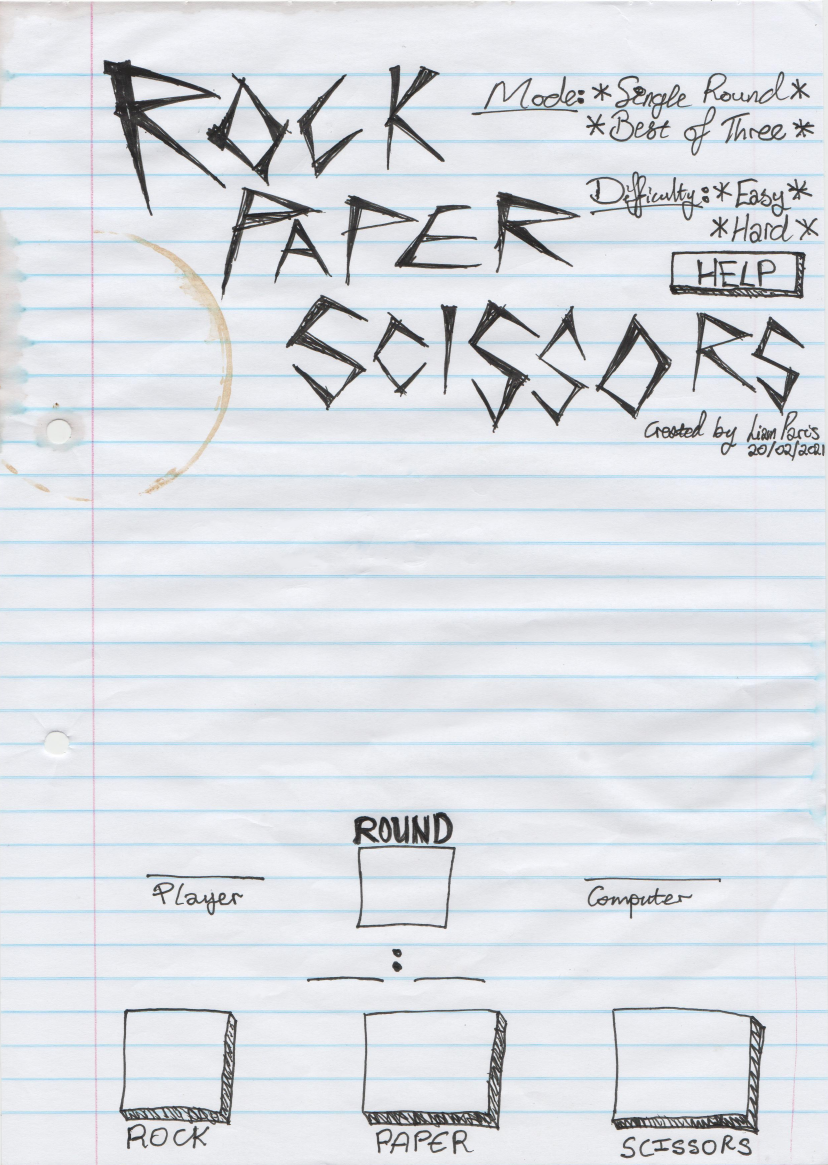 ROCK
PAPER
SCISSORS
Mode: *Single Round*
*Best of Three*
Difficulty: *Easy*
*Hard*
HELP
Created by Liam Paris
20/02/2021
ROUND
Player
Computer
:
ROCK
PAPER
SCISSORS